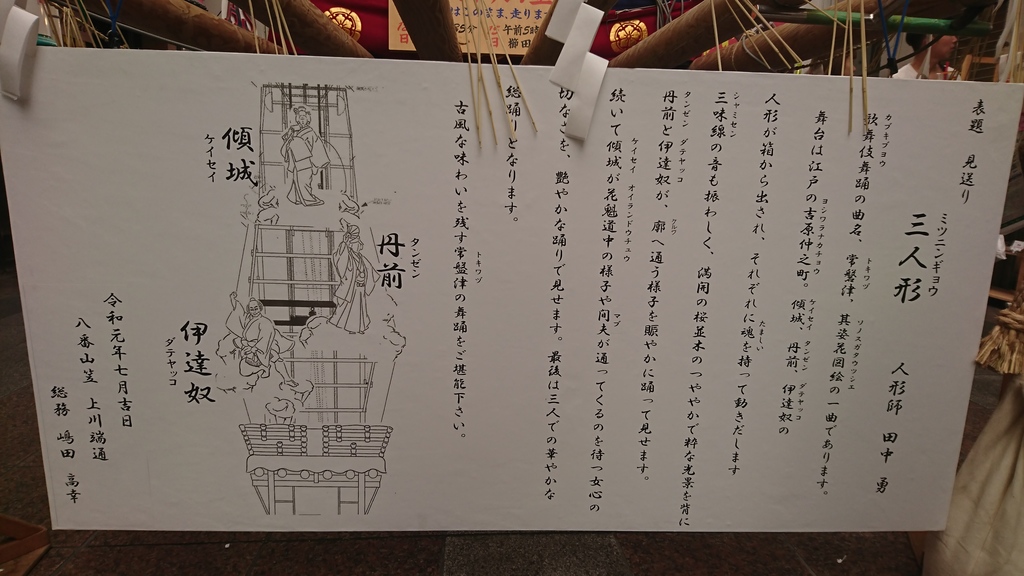 表題 見送り
三人形 人形師 田中 勇
ミツニンギョウ
歌舞伎舞踊の曲名、常磐津、其姿花図絵の一曲であります。
カブキブヨウ トキワヅ ソノスガタハナノウツシエ
舞台は江戸の吉原仲之町。傾城 丹前 伊達奴の
ヨシワラナカチョウ ケイセイ タンゼン ダテヤッコ
人形が箱から出され、それぞれに魂を持って動きだします
たましい
三味線の音も賑わしく、満開の桜並木のつややかで粋な光景を背に
シャミセン
丹前と伊達奴が、廓へ通う様子を賑やかに踊って見せます。
タンゼン ダテヤッコ クルワ
続いて傾城が花魁道中の様子や間夫が通ってくるのを待つ女心の
ケイセイ オイランドウチュウ マブ
切なさを、艶やかな踊りで見せます。最後は三人での華やかな
総踊りとなります。
古風な味わいを残す常磐津の舞踊をご堪能下さい。
トキワヅ
傾城
ケイセイ
丹前
タンゼン
伊達奴
ダテヤッコ
令和元年七月吉日
八番山笠 上川端通
総務 嶋田 高幸
はこのさま、走りま
午前5時
櫛田